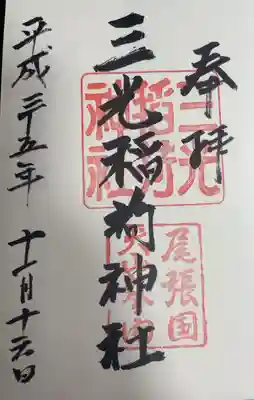 奉拝
三光稲荷神社
平成二五年 十一月十六日
三光
稲荷
神社
尾張国